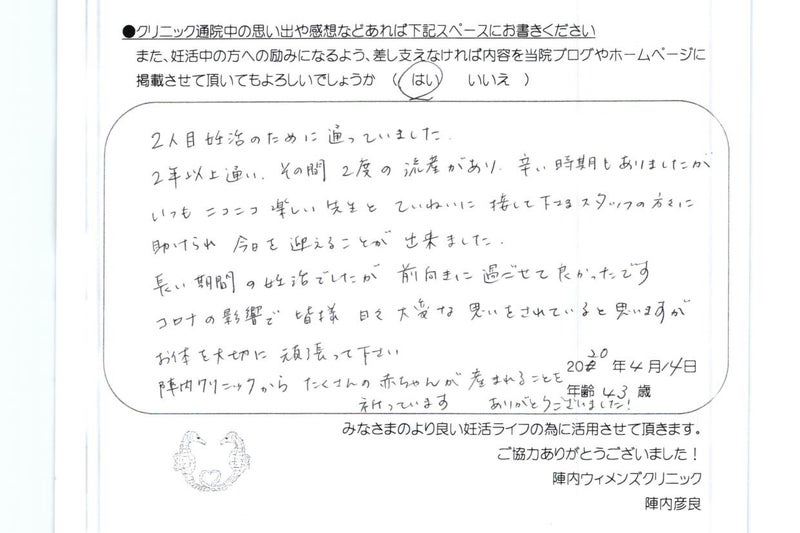 ●クリニック通院中の思い出や感想などあれば下記スペースにお書きください
また、妊活中の方への励みになるよう、差し支えなければ内容を当院ブログやホームページに
掲載させて頂いてもよろしいでしょうか ( はい いいえ )
2人目妊活のために通っていました.
2年以上通い、その間 2度の流産があり、辛い時期もありましたが
いつもニコニコ楽しい先生とていねいに接して下さるスタッフの方々に
助けられ 今日を迎えることが出来ました.
長い期間の妊活でしたが 前向きに過ごせて良かったです
コロナの影響で皆様 日々大変な思いをされていると思いますが
お体を大切に 頑張って下さい
陣内クリニックから たくさんの赤ちゃんが産まれることを
祈っています ありがとうございました!
2020年4月14日
年齢 43 歳
みなさまのより良い妊活ライフの為に活用させて頂きます。
ご協力ありがとうございました！
陣内ウィメンズクリニック
陣内彦良